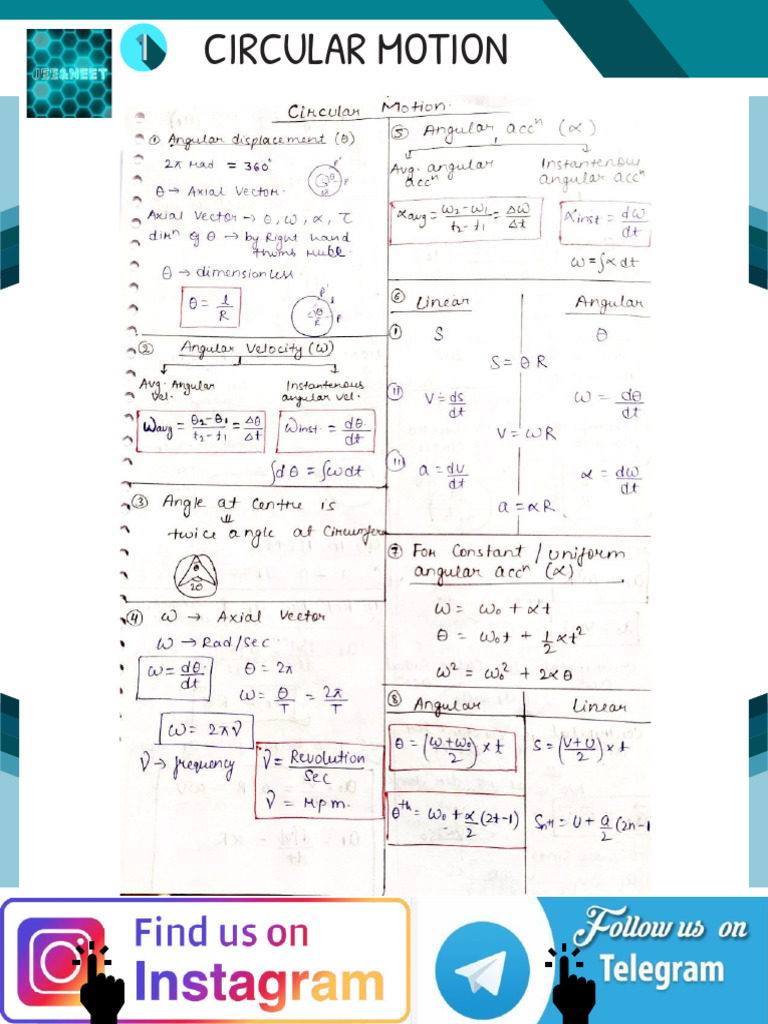 JEE&NEET
1
CIRCULAR MOTION
Circular Motion.
① Angular displacement (θ)
2π rad = 360°
θ → Axial Vector.
Axial Vector → θ, ω, α, τ
dirⁿ of θ → by Right hand
thumb rule.
θ → dimensionless.
θ = l/R
② Angular Velocity (ω)
Avg. Angular vel.
Instantenous angular vel.
ωavg = θ₂-θ₁/t₂-t₁ = Δθ/Δt
ωinst. = dθ/dt
∫dθ = ∫ωdt
③ Angle at Centre is
twice angle at Circumfere
θ
2θ
④ ω → Axial Vector
ω → Rad/Sec.
ω = dθ/dt
θ = 2π
ω = θ/T = 2π/T
ω = 2πν
ν → frequency
ν = Revolution/Sec
ν = r.p.m.
⑤ Angular accⁿ (α)
Avg. angular accⁿ
Instantenous angular accⁿ
αavg = ω₂-ω₁/t₂-t₁ = Δω/Δt
αinst = dω/dt
ω = ∫α dt
⑥ Linear Angular
① S θ
S = θR
(ii) V = ds/dt ω = dθ/dt
V = ωR
a = dv/dt α = dω/dt
a = αR
⑦ For Constant / Uniform
angular accⁿ (α)
ω = ω₀ + αt
θ = ω₀t + 1/2 αt²
ω² = ω₀² + 2αθ
⑧ Angular Linear
θ = (ω+ω₀/2) × t S = (V+U/2) × t
θᵗʰ = ω₀ + α/2 (2t-1) Sₙₜₕ = U + a/2 (2n-1
Find us on
Instagram
Follow us on
Telegram